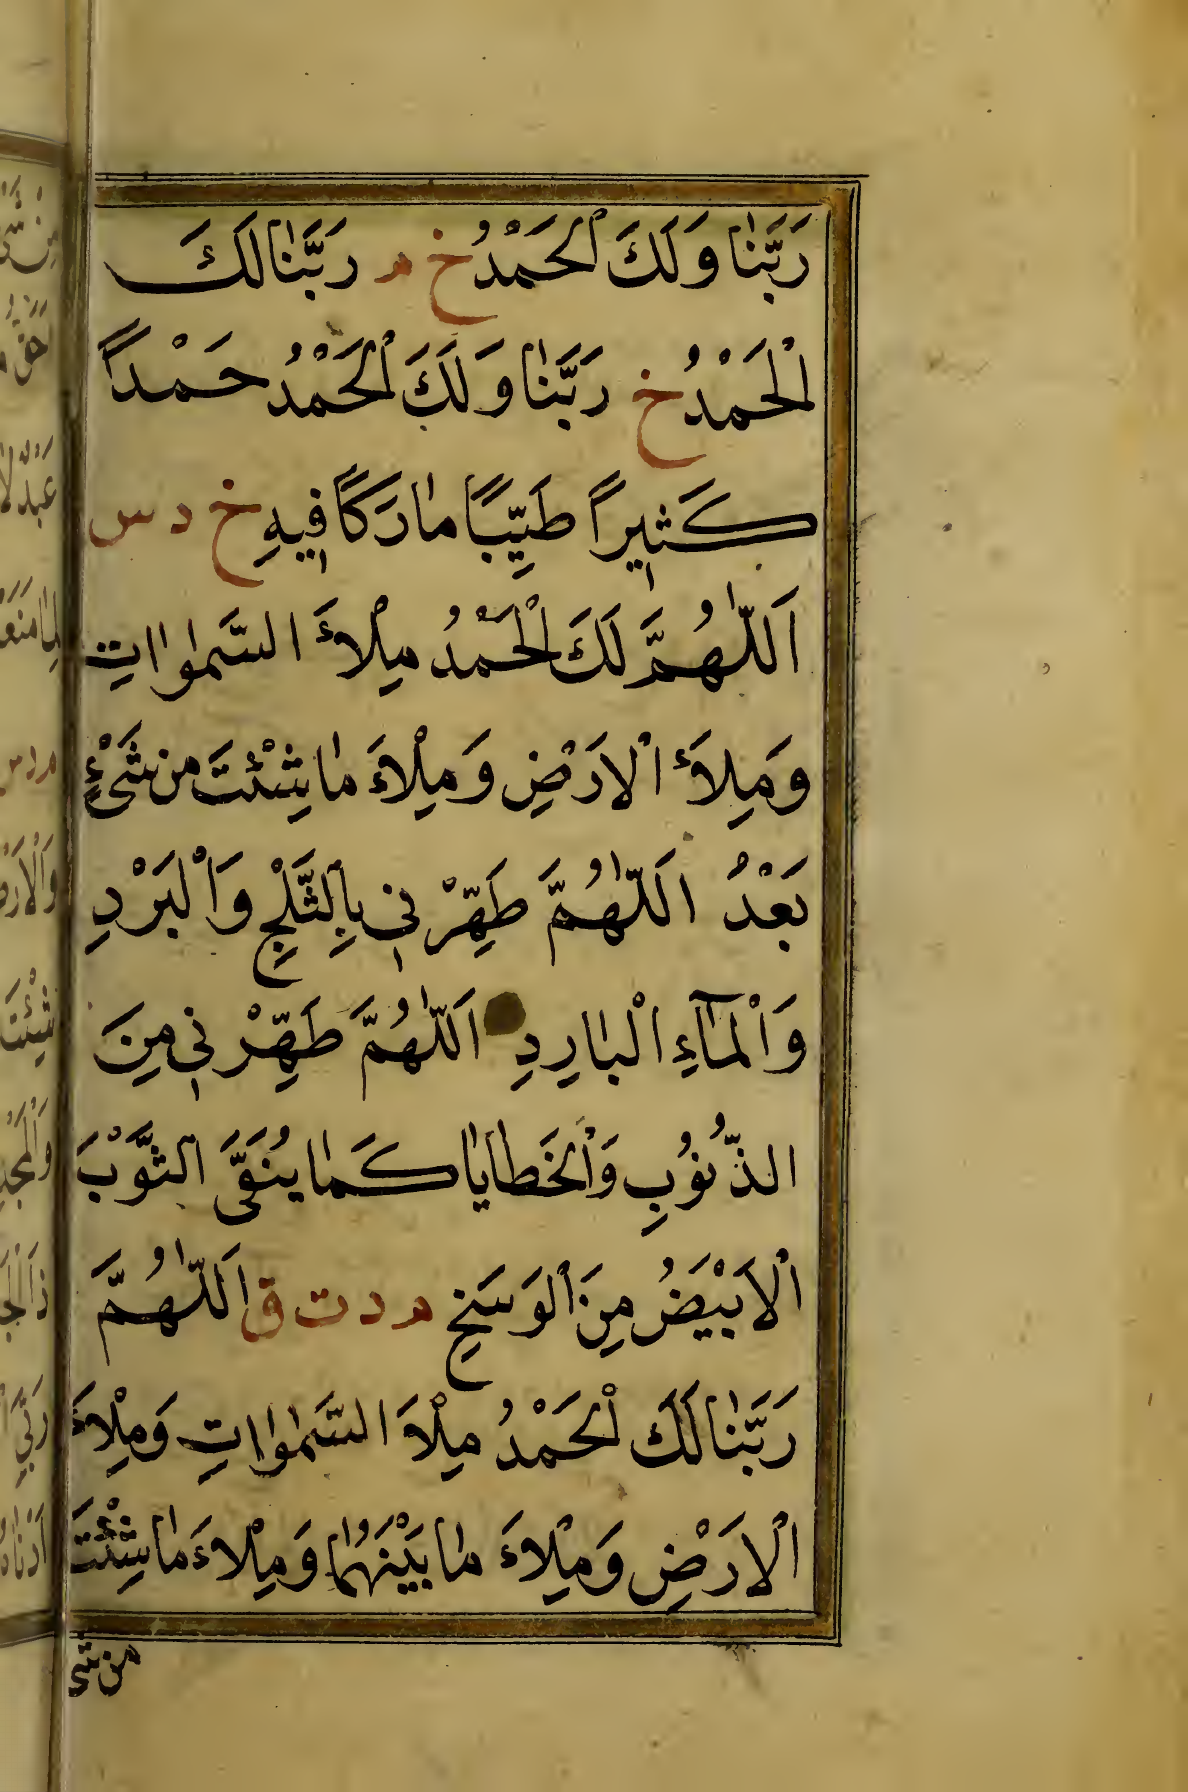 رَبَّنٰا وَلَكَ الْحَمْدُ خ م رَبَّنٰا لَكَ
الْحَمْدُ خ رَبَّنٰا وَلَكَ الْحَمْدُ حَمْداً
كَثٖيراً طَيِّبًا مٰارَكًا فٖيهِ خ د س
اَللّٰهُمَّ لَكَ الْحَمْدُ مِلْأَ السَّمٰوٰاتِ
وَمِلَأَ الْاَرْضِ وَمِلْاءَ مٰا شِئْتَ من شَىْءٍ
بَعْدُ اَللّٰهُمَّ طَهِّرْنٖى بِالثَّلْجِ وَالْبَرْدِ
وَالْمٰآءِ الْبٰارِدِ اَللّٰهُمَّ طَهِّرْنٖى مِنَ
الذُّنُوُبِ وَالْخَطٰايٰا كَمٰا يُنَقَّى الثَّوْبَ
الْاَبْيَضُ مِنَ الْوَسَخِ م د ت ق اَللّٰهُمَّ
رَبَّنٰا لَكَ الْحَمْدُ مِلْاَ السَّمٰوٰاتِ وَمِلْاءَ
الْاَرْضِ وَمِلْاءَ مٰا بَيْنَهُمٰا وَمِلْاءَ مٰا شِئْتَ
من شى